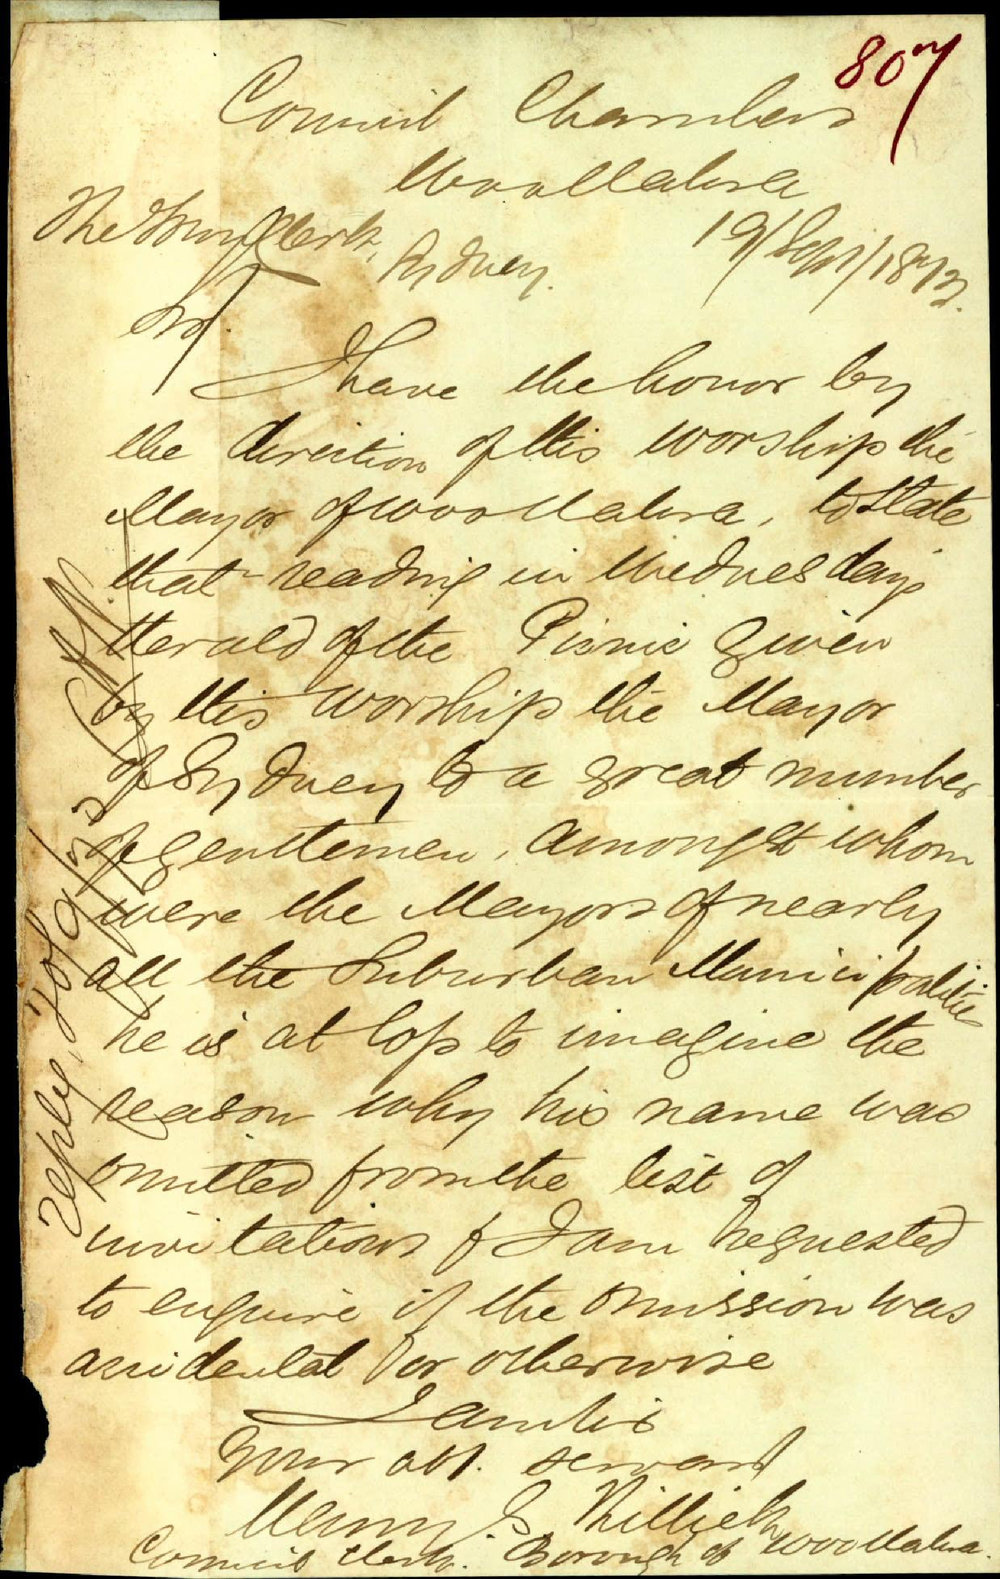 807
Council Chambers
Woollahra
19/Sept/1873.
The Town Clerk,
Sydney.
Sir/.
I have the honor by
the direction of His Worship the
Mayor of Woollahra, to state
that reading in Wednesdays
Herald of the Picnic given
by His Worship the Mayor
of Sydney to a great number
of gentlemen, amongst whom
were the Mayors of nearly
all the Suburban Municipalities
he is at loss to imagine the
reason why his name was
omitted from the list of
invitations & I am requested
to enquire if the omission was
accidental or otherwise
I am Sir
Your obt. servant
Council Clerk. Borough of Woollahra.
reply, 20/9/73